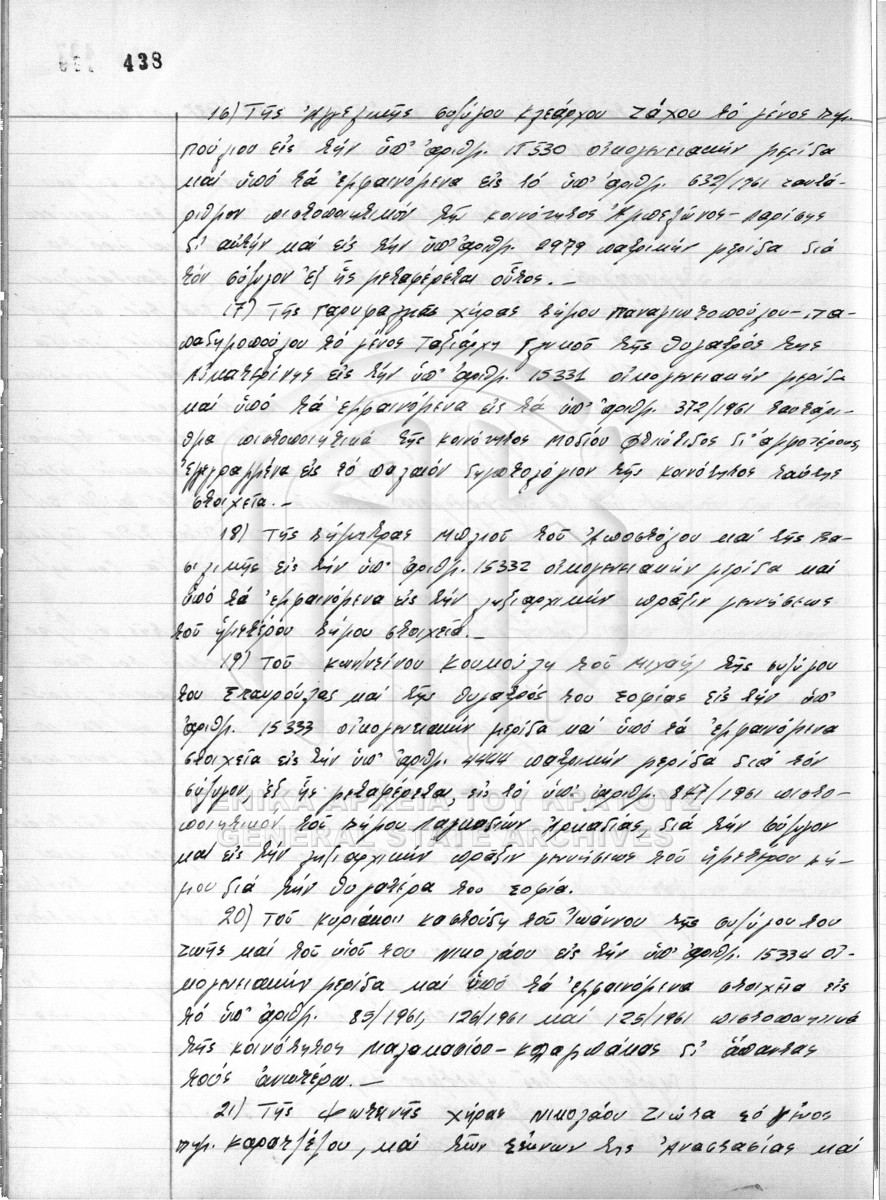 438
16) Τῆς Ἀγγελικῆς συζύγου Κλεάρχου Ζάχου τὸ γένος
πούλιου εἰς τὴν ὑπ' ἀριθμ. 15330 οἰκογενειακὴν μερίδα
καὶ ὑπὸ τὰ ἐμφαινόμενα εἰς τὸ ὑπ' ἀριθμ. 632/1961 ταυτά-
ριθμον πιστοποιητικὸν τῆς κοινότητος Ἀμπελῶνος-Λαρίσης
δι' αὐτὴν καὶ εἰς τὴν ὑπ' ἀριθμ. 2979 πατρικὴν μερίδα διὰ
τὸν σύζυγον ἐξ ἧς μεταφέρεται οὗτος.-
17) Τῆς Γαρυφαλλιᾶς χήρας Δήμου Παναγιωτοπούλου-Πα-
παδημοπούλου τὸ γένος Ταξιάρχη Γλυκοῦ τῆς θυγατρός της
Αἰκατερίνης εἰς τὴν ὑπ' ἀριθμ. 15331 οἰκογενειακὴν μερίδα
καὶ ὑπὸ τὰ ἐμφαινόμενα εἰς τὰ ὑπ' ἀριθμ. 372/1961 ταυτάρι-
θμα πιστοποιητικὰ τῆς κοινότητος Μοδίου Φθιώτιδος δι' ἀμφοτέρους
ἐγγεγραμμένα εἰς τὸ παλαιὸν δημοτολόγιον τῆς κοινότητος ταύτης
στοιχεῖα.-
18) Τῆς Δήμητρας Μπλιοῦ τοῦ Ἀποστόλου καὶ τῆς Βα-
σιλικῆς εἰς τὴν ὑπ' ἀριθμ. 15332 οἰκογενειακὴν μερίδα καὶ
ὑπὸ τὰ ἐμφαινόμενα εἰς τὴν ληξιαρχικὴν πρᾶξιν γεννήσεως
τοῦ ἡμετέρου Δήμου στοιχεῖα.-
19) Τοῦ Κων/τίνου Κουκούλη τοῦ Μιχαὴλ τῆς συζύγου
του Σταυρούλας καὶ τῆς θυγατρός του Σοφίας εἰς τὴν ὑπ'
ἀριθμ. 15333 οἰκογενειακὴν μερίδα καὶ ὑπὸ τὰ ἐμφαινόμενα
στοιχεῖα εἰς τὴν ὑπ' ἀριθμ. 4444 πατρικὴν μερίδα διὰ τὸν
σύζυγον ἐξ ἧς μεταφέρεται, εἰς τὸ ὑπ' ἀριθμ. 847/1961 πιστο-
ποιητικὸν τοῦ Δήμου Λαγκαδίων Ἀρκαδίας διὰ τὴν σύζυγον
καὶ εἰς τὴν ληξιαρχικὴν πρᾶξιν γεννήσεως τοῦ ἡμετέρου Δή-
μου διὰ τὴν θυγατέρα του Σοφία.
20) Τοῦ Κυριάκου Καστούδη τοῦ Ἰωάννου τῆς συζύγου του
Ζωῆς καὶ τοῦ υἱοῦ του Νικολάου εἰς τὴν ὑπ' ἀριθμ. 15334 οἰ-
κογενειακὴν μερίδα καὶ ὑπὸ τὰ ἐμφαινόμενα στοιχεῖα εἰς
τὸ ὑπ' ἀριθμ. 85/1961, 126/1961 καὶ 125/1961 πιστοποιητικὰ
τῆς κοινότητος Μαλακασίου-Καλαμπάκας δι' ἅπαντας
τοὺς ἀνωτέρω.-
21) Τῆς Φωτεινῆς χήρας Νικολάου Ζιώτα τὸ γένος
Καρατζέζου, καὶ τῶν τέκνων της Ἀναστασίας καὶ
ΓΕΝΙΚΑ ΑΡΧΕΙΑ ΤΟΥ ΚΡΑΤΟΥΣ
GENERAL STATE ARCHIVES